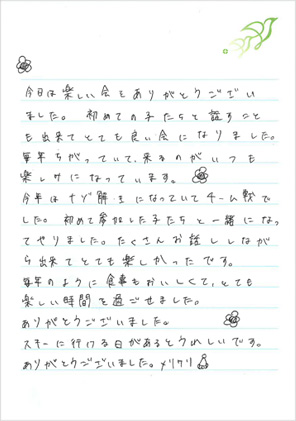 今日は楽しい会をありがとうござい
ました。初めての子たちと話すこと
も出来てとても良い会になりました。
毎年ちがっていて、来るのがいつも
楽しみになっています。
今年はナゾ解きになっていてチーム戦で
した。初めて参加した子たちと一緒になっ
てやりました。たくさんお話ししなが
ら出来てとても楽しかったです。
毎年のように食事もおいしくて、とても
楽しい時間を過ごせました。
ありがとうございました。
スキーに行ける日があるとうれしいです。
ありがとうございました。メリクリ